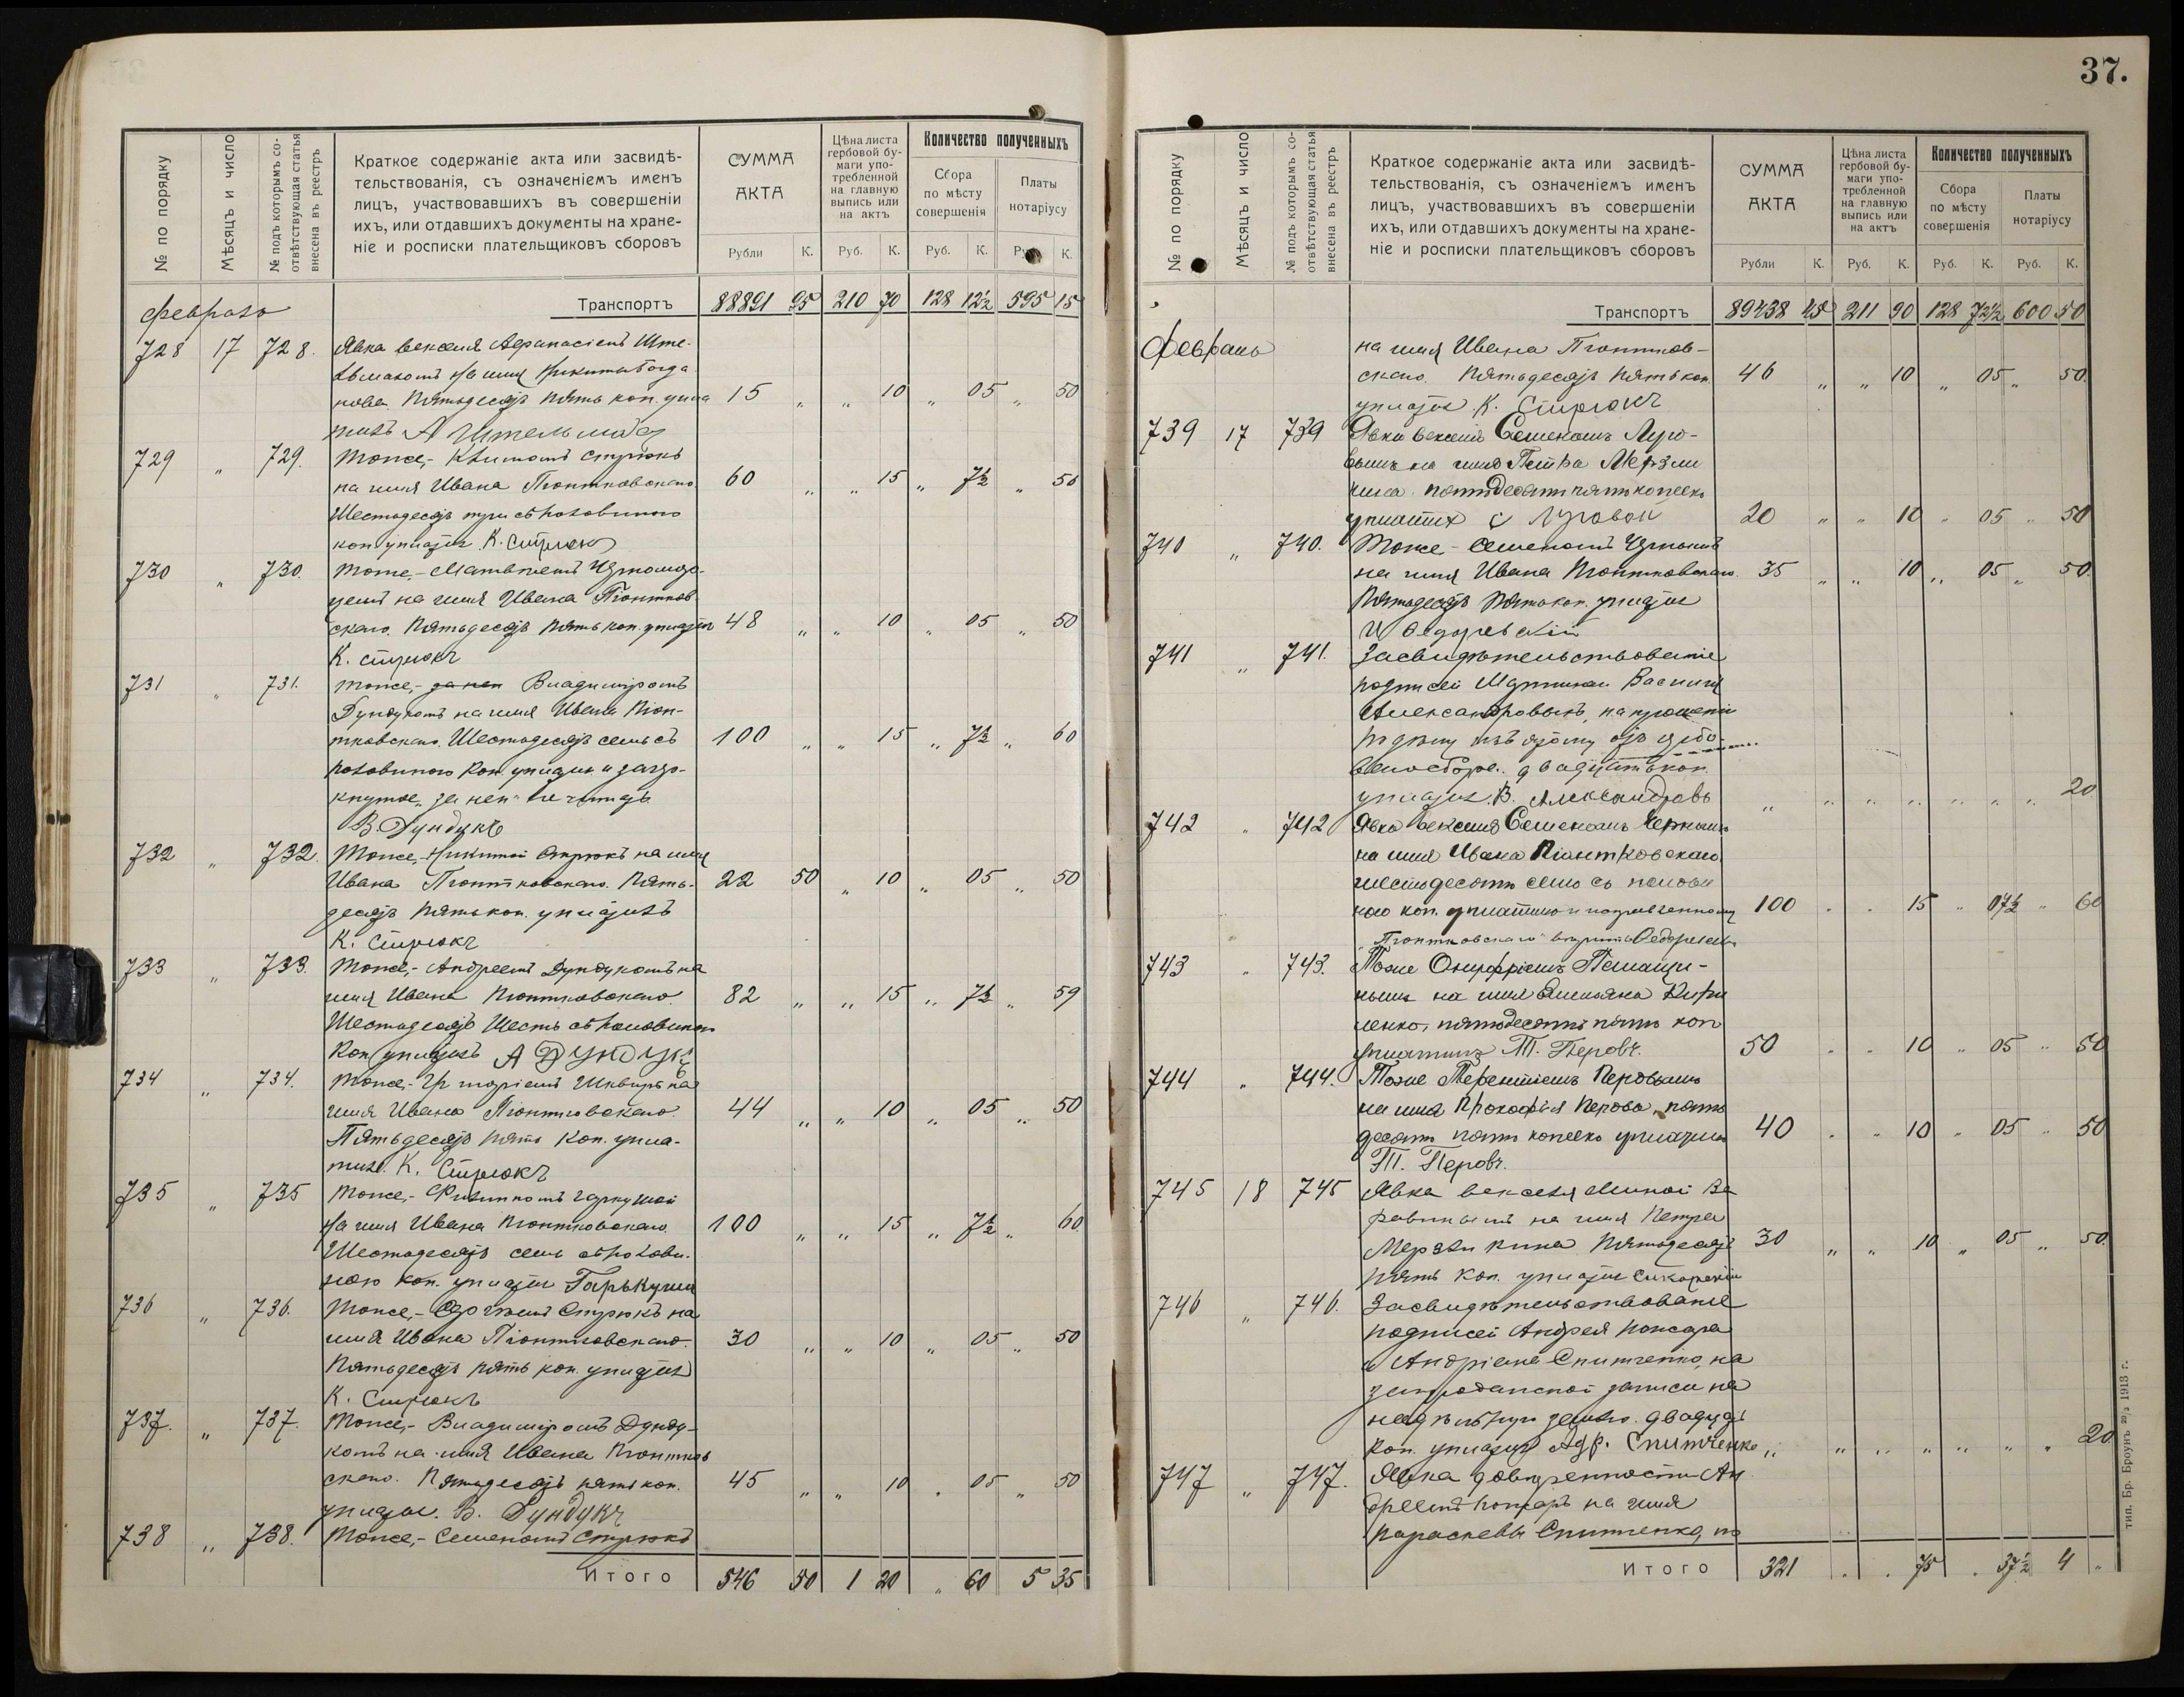 37.
№ по порядку
Мѣсяцъ и число
№ подъ которымъ со-
отвѣтствующая статья
внесена въ реестръ
Краткое содержаніе акта или засвидѣ-
тельствованія, съ означеніемъ именъ
лицъ, участвовавшихъ въ совершеніи
ихъ, или отдавшихъ документы на хране-
ніе и росписки плательщиковъ сборовъ
СУММА
АКТА
Рубли К.
Цѣна листа
гербовой бу-
маги упо-
требленной
на главную
выпись или
на актъ
Руб. К.
Количество полученныхъ
Сбора
по мѣсту
совершенія
Руб. К.
Платы
нотаріусу
Руб. К.
Транспортъ 88891 95 210 70 128 12½ 595 15
728 17 728. Явка векселя АфанасіемъШте-
на имя Никиты Богда
нова. Пятьдесятъ пять коп. упла 15 " " 10 " 05 " 50
тилъ А
729 " 729. Тоже,- Стрюкъ
на имя Ивана Піонтковскаго. 60 " " 15 " 7½ " 50
Шестьдесятъ съ половиною
коп. уплатилъ К. Стрюкъ
730 " 730. Тоже,- Матвѣемъ
на имя Ивана Піонтков-
скаго. Пятьдесятъ пять коп. уплатилъ 48 " " 10 " 05 " 50
К. Стрюкъ
731 " 731. Тоже,- за нея Владиміромъ
Дундукомъ на имя Ивана Піон-
тковскаго. Шестьдесятъ семь съ 100 " " 15 " 7½ " 60
половиною коп. уплатилъ и зачер-
кнутое „за нея" не читать
В. Дундукъ
732 " 732. Тоже,- Никитой Стрюкъ на имя
Ивана Піонтковскаго. Пять- 22 50 " 10 " 05 " 50
десятъ пять коп. уплатилъ
К. Стрюкъ
733 " 733. Тоже,- Андреемъ Дундукомъ на
имя Ивана Піонтковскаго. 82 " " 15 " 7½ " 59
Шестьдесятъ шесть съ половиною
коп. уплатилъ А Дундукъ
734 " 734. Тоже,- Григоріемъ на
имя Ивана Піонтковскаго. 44 " " 10 " 05 " 50
Пятьдесятъ пять коп. упла-
тилъ. К. Стрюкъ
735 " 735 Тоже,- Филиппомъ Гаркушей
на имя Ивана Піонтковскаго. 100 " " 15 " 7½ " 60
Шестьдесятъ семь съ полови-
ною коп. уплатилъ
736 " 736. Тоже,- Стрюкъ на
имя Ивана Піонтковскаго. 30 " " 10 " 05 " 50
Пятьдесятъ пять коп. уплатилъ
К. Стрюкъ
737. " 737. Тоже,- Владиміромъ Дунду-
комъ на имя Ивана Піонтков
скаго. Пятьдесятъ пять коп. 45 " " 10 " 05 " 50
уплатилъ. В. Дундукъ
738 " 738. Тоже,- Семеномъ Стрюкъ
Итого 546 50 1 20 " 60 5 35
№ по порядку
Мѣсяцъ и число
№ подъ которымъ со-
отвѣтствующая статья
внесена въ реестръ
Краткое содержаніе акта или засвидѣ-
тельствованія, съ означеніемъ именъ
лицъ, участвовавшихъ въ совершеніи
ихъ, или отдавшихъ документы на хране-
ніе и росписки плательщиковъ сборовъ
СУММА
АКТА
Рубли К.
Цѣна листа
гербовой бу-
маги упо-
требленной
на главную
выпись или
на актъ
Руб. К.
Количество полученныхъ
Сбора
по мѣсту
совершенія
Руб. К.
Платы
нотаріусу
Руб. К.
Транспортъ 89438 45 211 90 128 72½ 600 50
Февраль на имя Ивана Піонтков-
скаго. Пятьдесятъ пять коп. 46 " " 10 " 05 " 50.
уплатилъ К. Стрюкъ
739 17 739 Явка векселя Семеномъ Луго-
вымъ на имя Петра Мерзли
кина. пятьдесятъ пять копеекъ
уплатилъ С Луговой 20 " " 10 " 05 " 50
740 " 740. Тоже,- Семеномъ
на имя Ивана Піонтковскаго. 35 " " 10 " 05 " 50.
Пятьдесятъ пять коп. уплатилъ
741 " 741. Засвидѣтельствованіе
подписей Василія
Александровыхъ, на прошеніи
двадцать коп.
уплатилъ. В. Александровъ " " " " " " " 20
742 " 742 Явка векселя Семеномъ Чернымъ
на имя Ивана Піонтковскаго
шестьдесятъ семь съ полови
ною коп. 100 " " 15 " 07½ " 60
„Піонтковскаго" вѣрить
743 " 743. Тоже Онуфріемъ
нымъ на имя Емельяна Кири
ленко, пятьдесятъ пять коп
уплатилъ Т. Перовъ. 50 " " 10 " 05 " 50
744 " 744. Тоже Терентіемъ Перовымъ
на имя Прокофія Перова, пять
десятъ пять копеекъ уплатилъ 40 " " 10 " 05 " 50
Т. Перовъ.
745 18 745 Явка векселя
на имя Петра
Мерзликина Пятьдесятъ 30 " " 10 " 05 " 50.
пять коп. уплатилъ
746 " 746. Засвидѣтельствованіе
подписей Андрея
и Андріана Спитченко, на
записи на
землю. двадцать
коп. уплатилъ Адр. Спитченко " " " " " " " 20
747 " 747. Явка довѣренности Ан
дреемъ на имя
Параскевы Спитченко, по
Итого 321 " " 75 " 37½ 4 "
тип. Бр. Броунъ 20/3 1913 г.